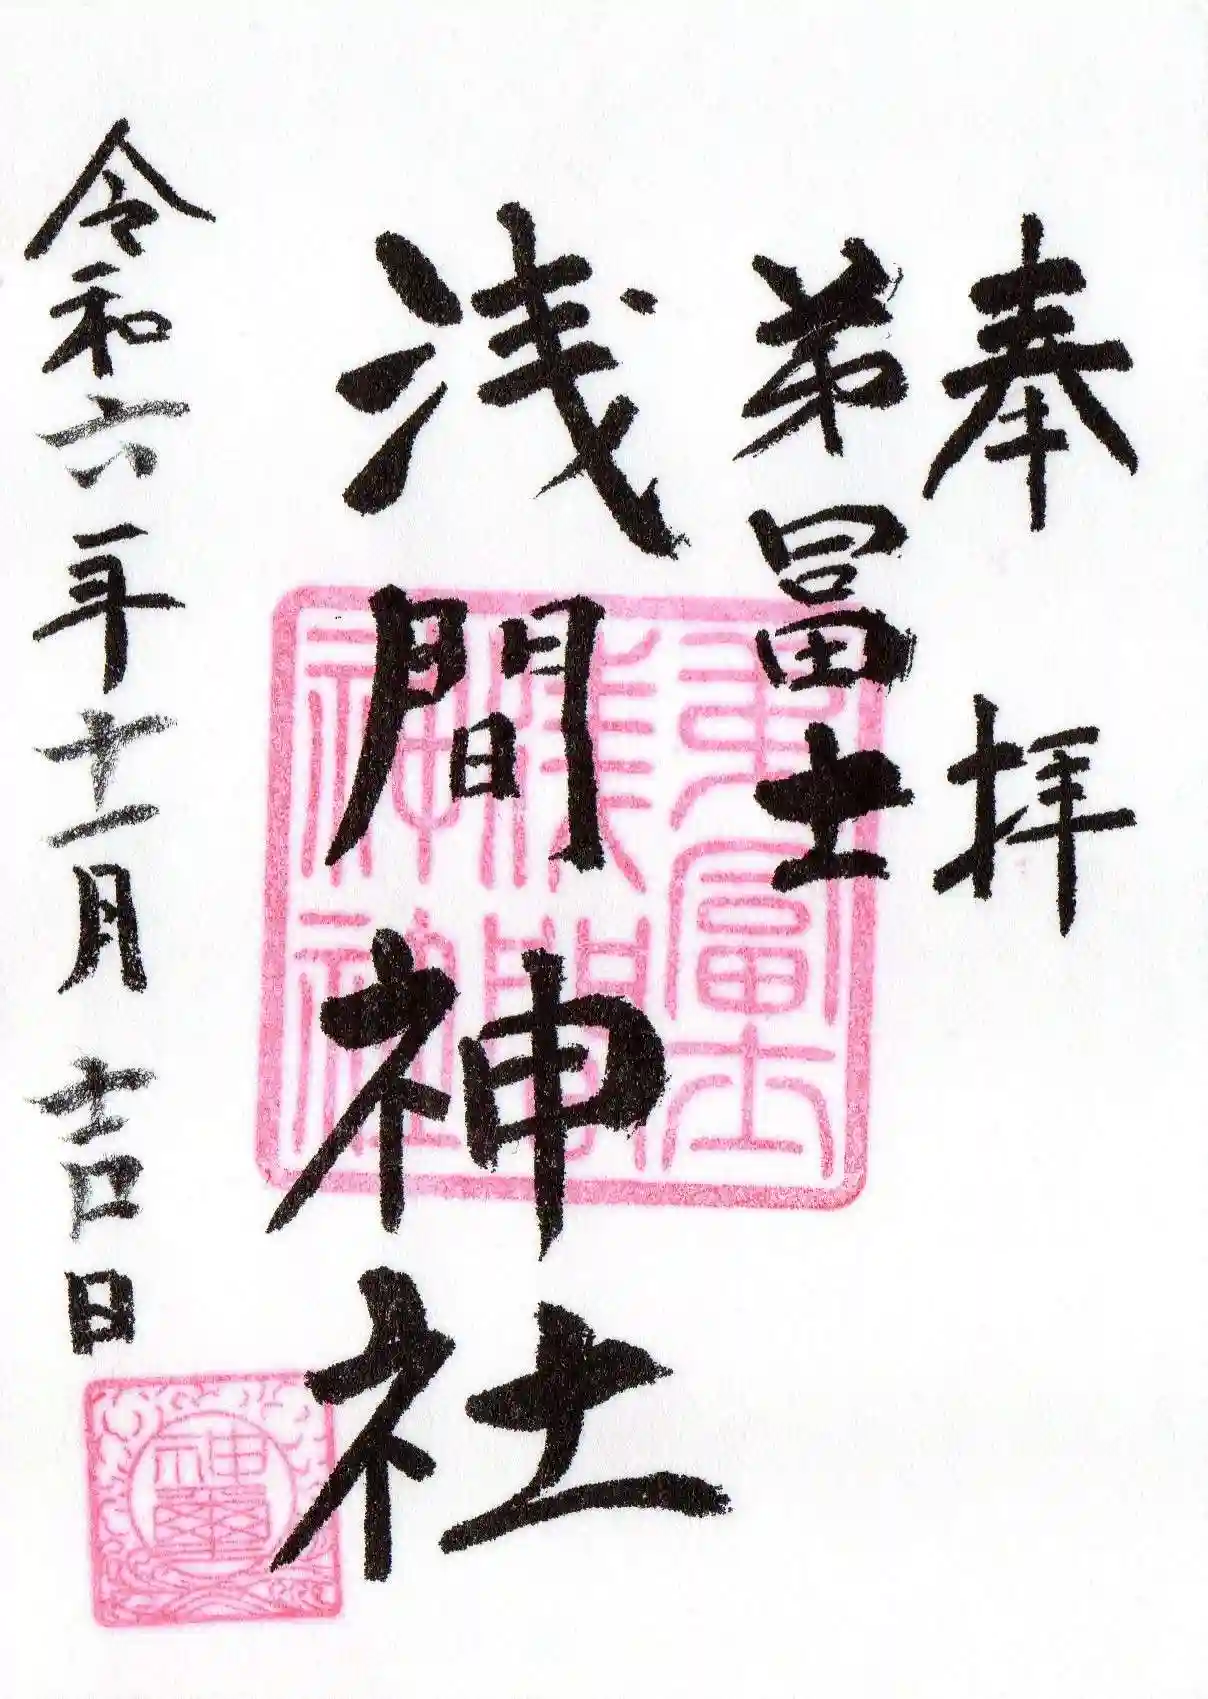 奉拝
弟冨士
浅間神社
令和六年十一月吉日
弟富士
淺間
神社
神璽